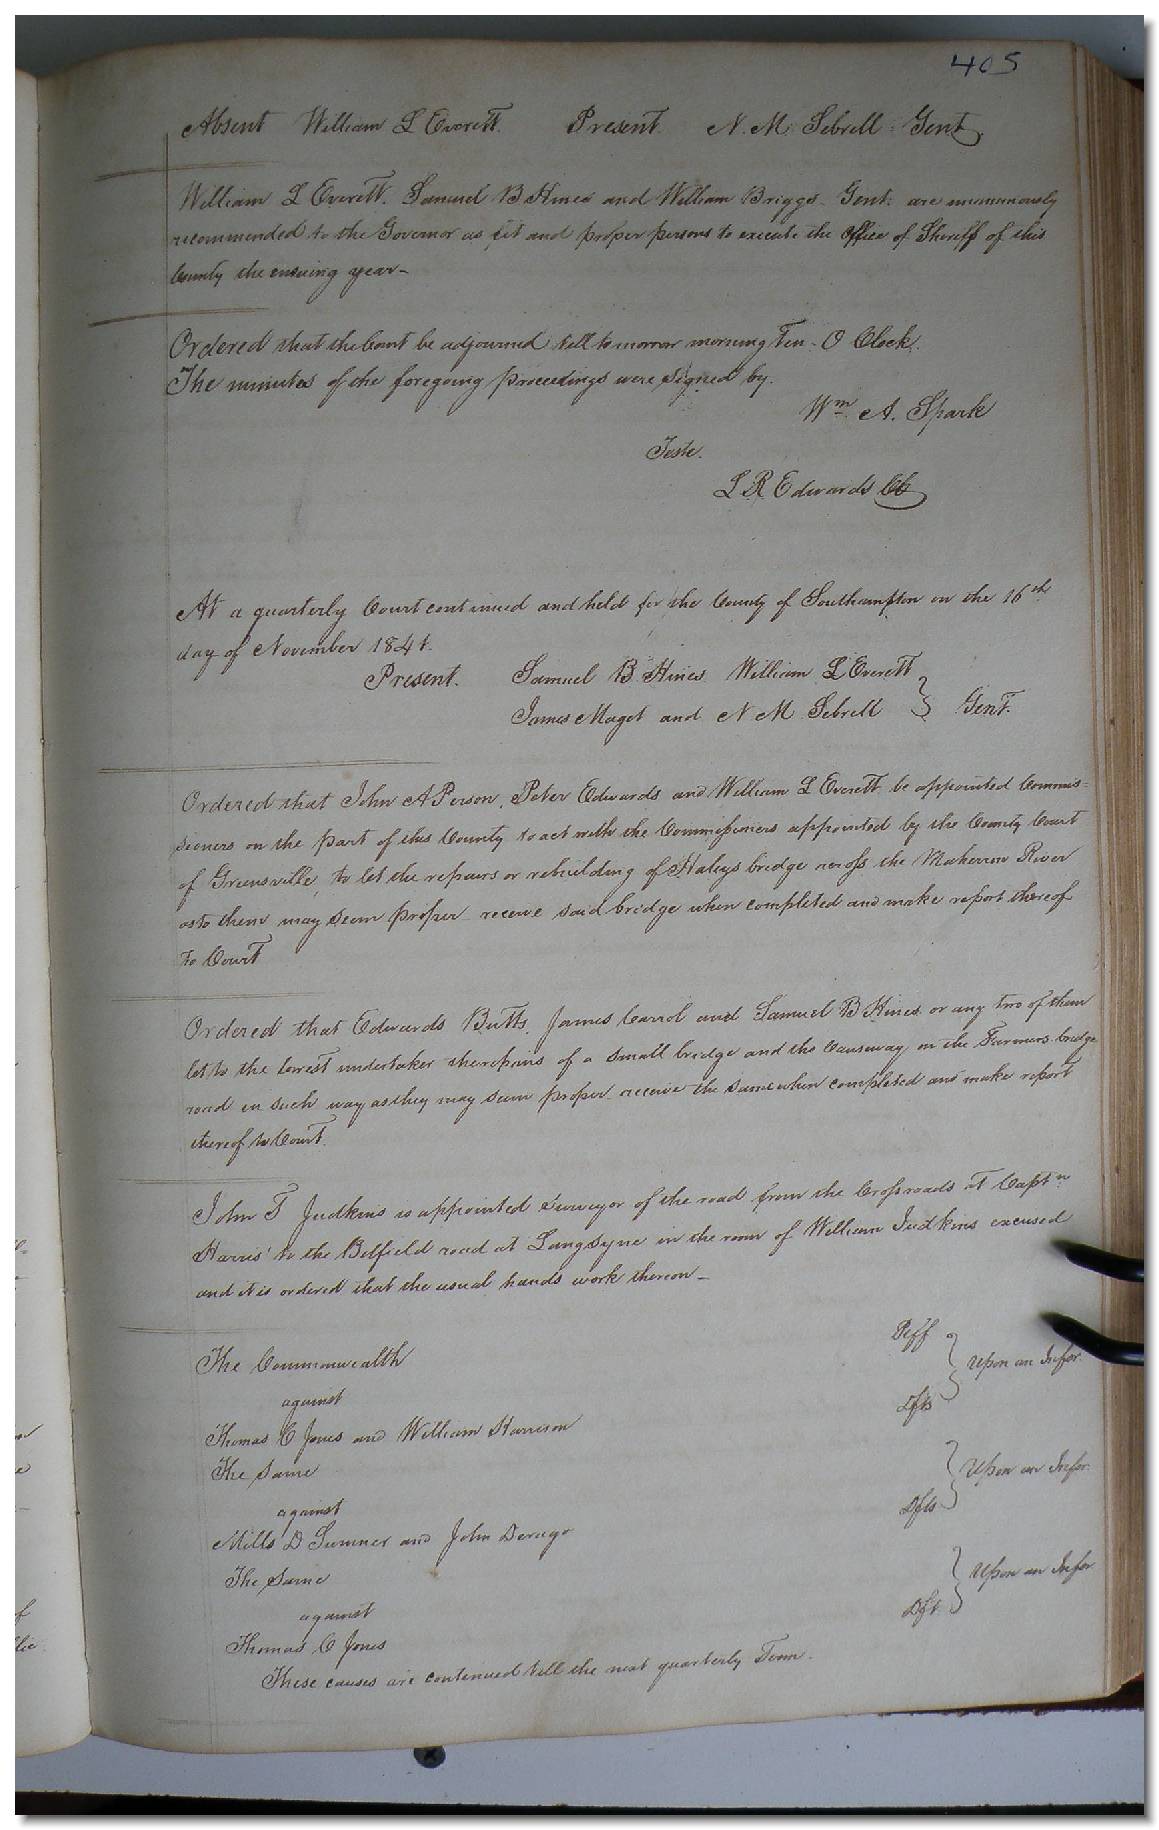 405
Absent William L Everett. Present. N. M. Sebrell Gent.
William L Everett. Samuel B Hines and William Briggs Gent: are unanimously
recommended to the Governor as fit and proper persons to execute the Office of Sheriff of this
County the ensuing year-
Ordered that the Court be adjourned till tomorrow morning Ten. O Clock.
The minutes of the foregoing proceedings were signed by.
Wm A. Spark
Teste.
L R Edwards Cl
At a quarterly Court continued and held for the County of Southampton on the 16th
day of November 1841.
Present. Samuel B. Hines. William L Everett
James Maget and N M Sebrell Gent.
Ordered that John A Person, Peter Edwards and William L Everett be appointed Commis=
sioners on the part of this County to act with the Commissioners appointed by the County Court
of Greensville, to let the repairs or rebuilding of Haleys bridge across the Meherrin River
as to them may seem proper receive said bridge when completed and make report thereof
to Court
Ordered that Edwards Butts, James Carrol and Samuel B Hines or any two of them
let to the lowest undertaker the repairs of a small bridge and the Causeway on the Farmers bridge
road in such way as they may seem proper receive the same when completed and make report
thereof to Court.
John T Judkins is appointed surveyor of the road from the Crossroads at Captn
Harris' to the Belfield road at Langsyne in the room of William Judkins excused
and it is ordered that the usual hands work thereon-
The Commonwealth Pltff
against Upon an Infor:
Thomas C Jones and William Harrison Dfts
The Same
against Upon an Infor:
Mills D Sumner and John Dts Dfts
The Same
against Upon an Infor
Thomas C Jones Dft.
These causes are continued till the next quarterly Term.